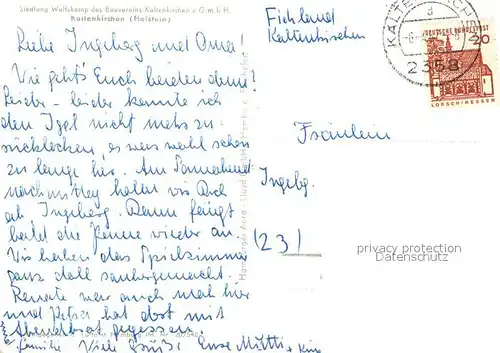 Siedlung Wulfskamp des Bauvereins Kaltenkirchen e.G.m.b.H.
Kaltenkirchen (Holstein)
Liebe Ingeborg und Oma!
Wie geht's Euch beiden denn?
Leider - leider konnte ich
den Igel nicht mehr zu-
rücklocken, es war wohl schon
zu lange hier. Am Sonnabend
nachmittag holen wir Dich
ab, Ingeborg. Dann fängt
bald die Penne wieder an.
Wir haben das Spielzimmer
ganz doll saubergemacht.
Renate war auch mal hier
und Peter hat dort mit
Abendbrot gegessen.
Familie Viele Grüße Eure Mutti +
Kaltenkirchen
Fräulein
Ingebg.
(23)
KALTENKIRCHEN
2358
DEUTSCHE BUNDESPOST
20
LORSCH/HESSEN
privacy protection
Datenschutz